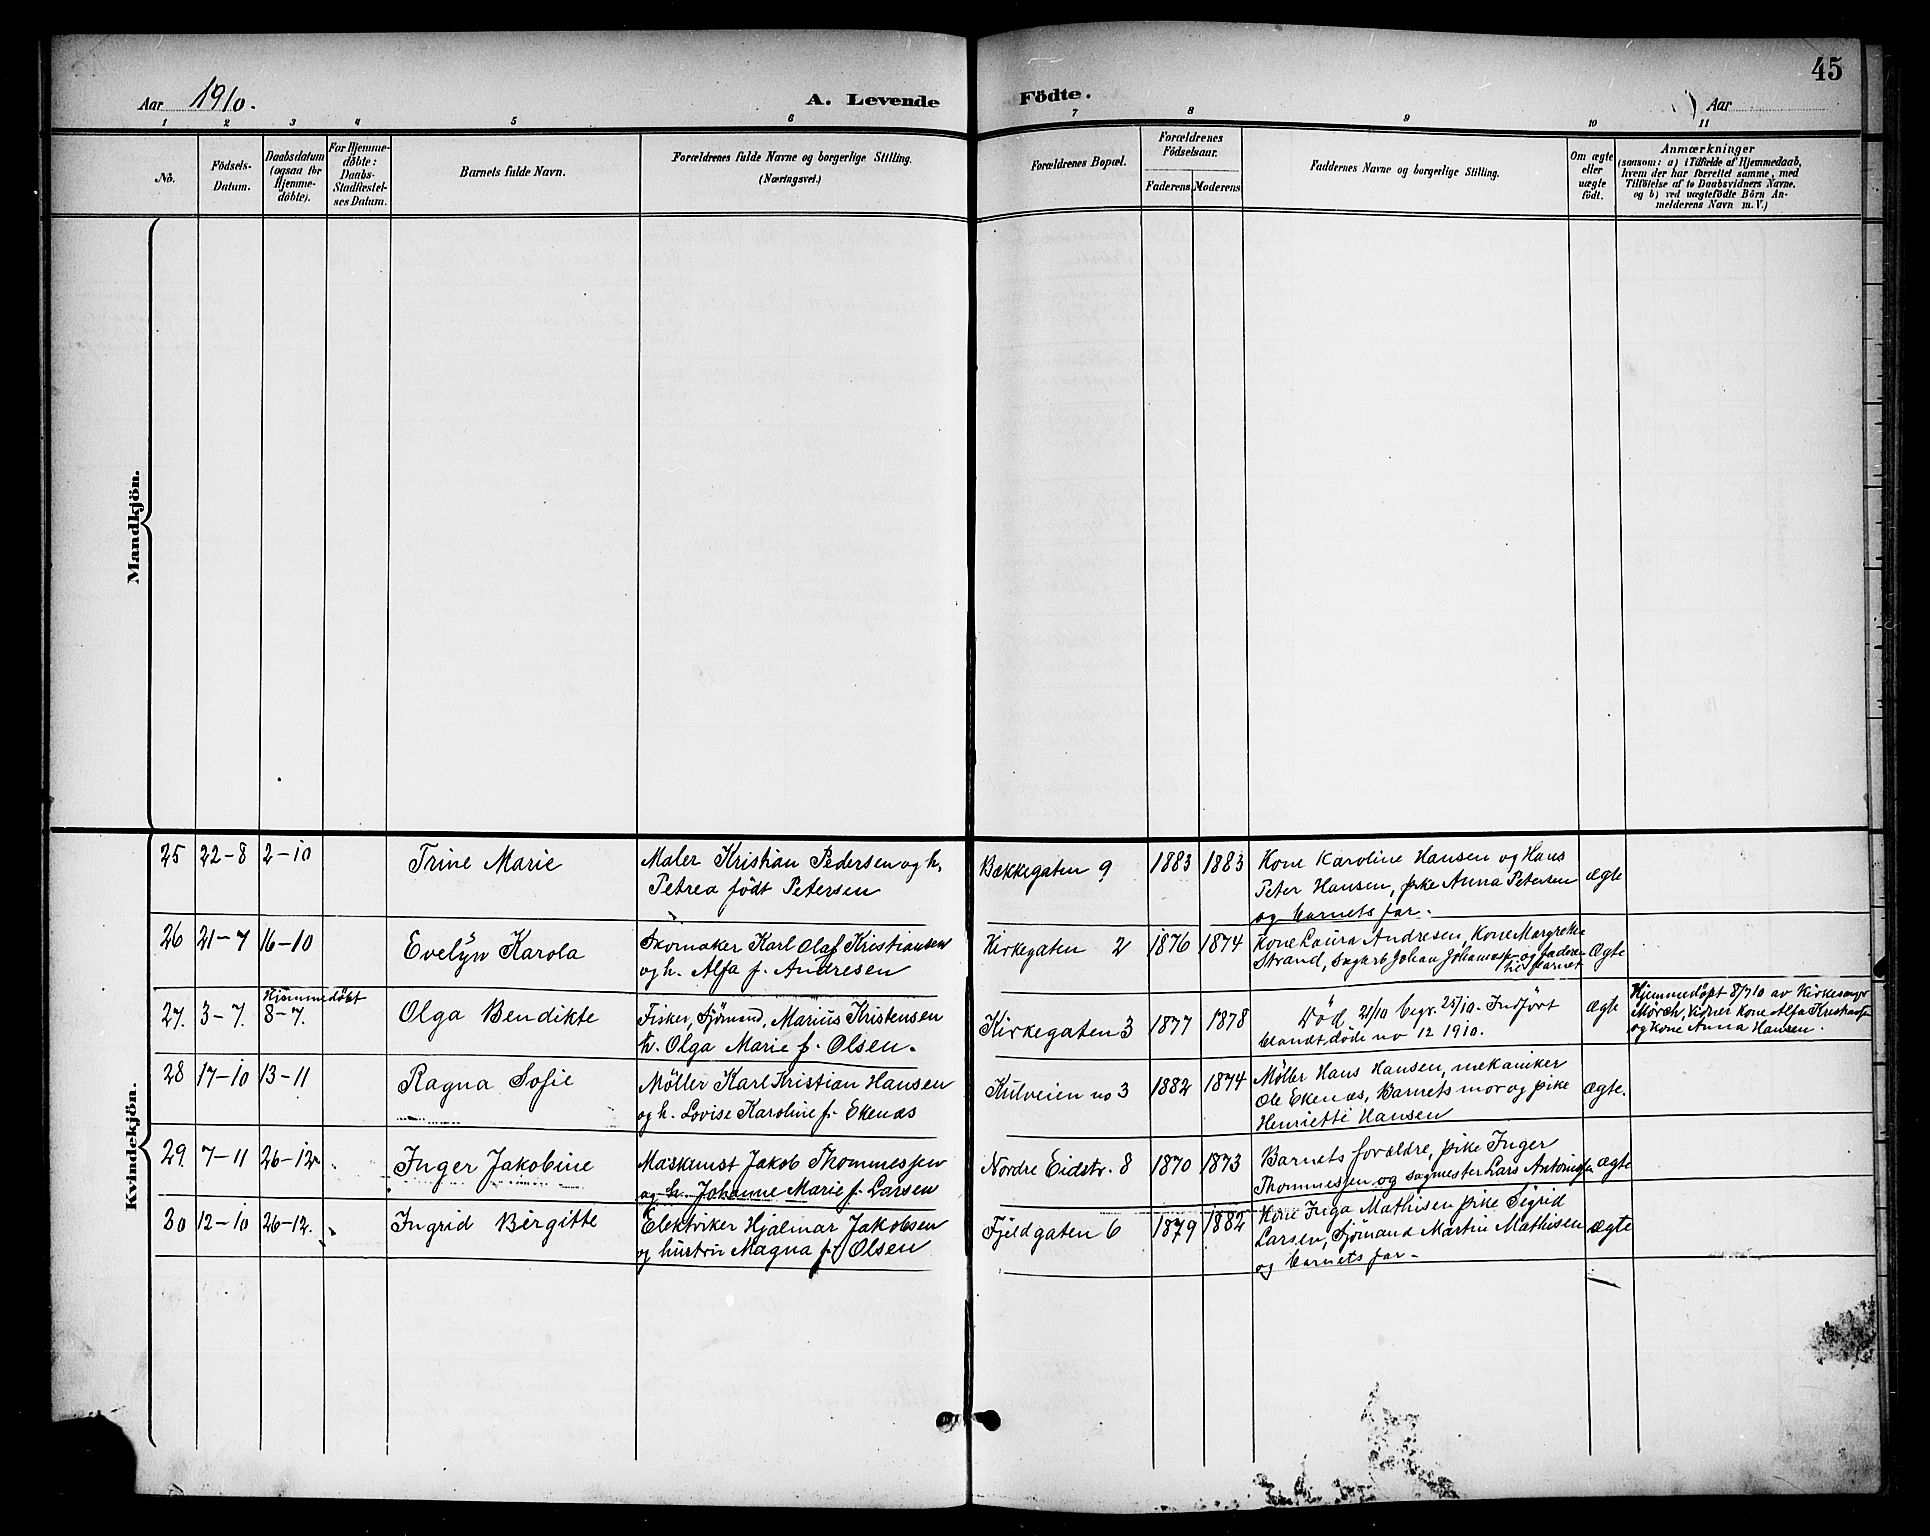 45
Aar 1910.
A. Levende Födte.
Aar
1 2 3 4 5 6 7 8 9 10 11
No.
Födsels-
Datum.
Daabsdatum
(ogsaa for
Hjemme-
døbte).
For Hjemme-
døbte:
Daabs-
Stadfæstel-
ses Datum.
Barnets fulde Navn.
Forældrenes fulde Navne og borgerlige Stilling.
(Næringsvei.)
Forældrenes Bopæl.
Forældrenes
Födselsaar.
Faderens. Moderens.
Faddernes Navne og borgerlige Stilling.
Om ægte
eller
uægte
födt.
Anmærkninger
(saasom: a) i Tilfælde af Hjemmedaab,
hvem der har forrettet samme, med
Tilføielse af to Daabsvidners Navne,
og b) ved uægtefödte Börn An-
melderens Navn m. V.)
Mandkjön.
Kvindekjön.
25 22-8 2-10 Trine Marie
Maler Kristian Pedersen og h.
Petrea födt Petersen
Bækkegaten 9 1883 1883
Kone Karoline Hansen og Hans
Peter Hansen, pike Anna Petersen
og barnets far.
ægte
26 21-7 16-10 Evelyn Karola
Skomaker Karl Olaf Kristiansen
og h. Alfa f. Andresen
Kirkegaten 2 1876 1874
Kone Laura Andresen, Kone Margrethe
Strand, Johan
ægte
27. 3-7. Hjemmedøpt
8-7. Olga Bendikte
Fisker, Sjömand, Marius Kristensen
h. Olga Marie f. Olsen.
Kirkegaten 3 1877 1878
Död 21/10 begr. 25/10. Indfört
blandt døde no 12 1910.
ægte
Hjemmedöpt 8/7 10 av Kirkesanger
Kone Alfa
og kone Anna Hansen.
28 17-10 13-11 Ragna Sofie
Möller Karl Kristian Hansen
og h. Lovise Karoline f. Ekenæs
Kulveien no 3 1882 1874
Möller Hans Hansen, mekaniker
Ole Ekenæs, Barnets mor og pike
Henriette Hansen
ægte.
29. 7-11 26-12 Inger Jakobine
Maskinist Jakob Thommessen
og h. Johanne Marie f. Larsen
Nordre Eidstr. 8 1870 1873
Barnets forældre, pike Inger
Thommessen og sagmester Lars
ægte
30 12-10 26-12. Ingrid Birgitte
Elektriker Hjalmar Jakobsen
og hustru Magna f. Olsen
Fjeldgaten 6 1879 1882
Kone Inga Mathisen pike Sigrid
Larsen, Sjømand Martin Mathisen
og barnets far.
ægte